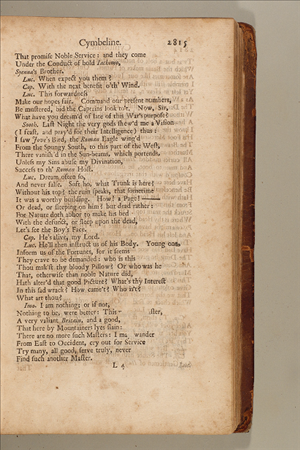 Cymbeline. 2815
That promise Noble Service: and they come
Under the Conduct of bold Iachimo,
Syenna's Brother.
Luc. When expect you them?
Cap. With the next benefit o'th' Wind.
Luc. This forwardness
Make our hopes fair. Command our present numbers,
Be muster'd, bid the Captains look to't. Now, Sir,
What have you dream'd of late of this War's purpose?
Sooth. Last Night the very gods shew'd me a Vision
(I fast, and pray'd for their Intelligence) thus:
I saw Jove's Bird, the Roman Eagle wing'd
From the spungy South, to this part of the West,
There vanish'd in the Sun-beams, which portends,
Unless my Sins abuse my Divination,
Success to th' Roman Host.
Luc. Dream often so,
And never false. Soft ho, what Trunk is here?
Without his top? the ruin speaks, that sometime
It was a worthy building. How! a Page!
Or dead, or sleeping on him? but dead rather:
For Nature doth abhor to make his bed
With the defunct, or sleep upon the dead,
Let's see the Boy's Face.
Cap. He's alive, my Lord.
Luc. He'll then instruct us of his Body. Young one,
Inform us of thy Fortunes, for it seems
They crave to be demanded: who is this
Thou mak'st thy bloody Pillow? Or who was he
That, otherwise than noble Nature did,
Hath alter'd that good Picture? What's thy Interest
In this sad wrack? How came't? Who is't?
What art thou?
Imo. I am nothing; or if not,
Nothing to be, were better: This ster,
A very valiant Britain, and a good,
That here by Mountaineers lyes slain:
There are no more such Masters: I may wander
From East to Occident, cry out for Service
Try many, all good, serve truly, never
Find such another Master.
L 4